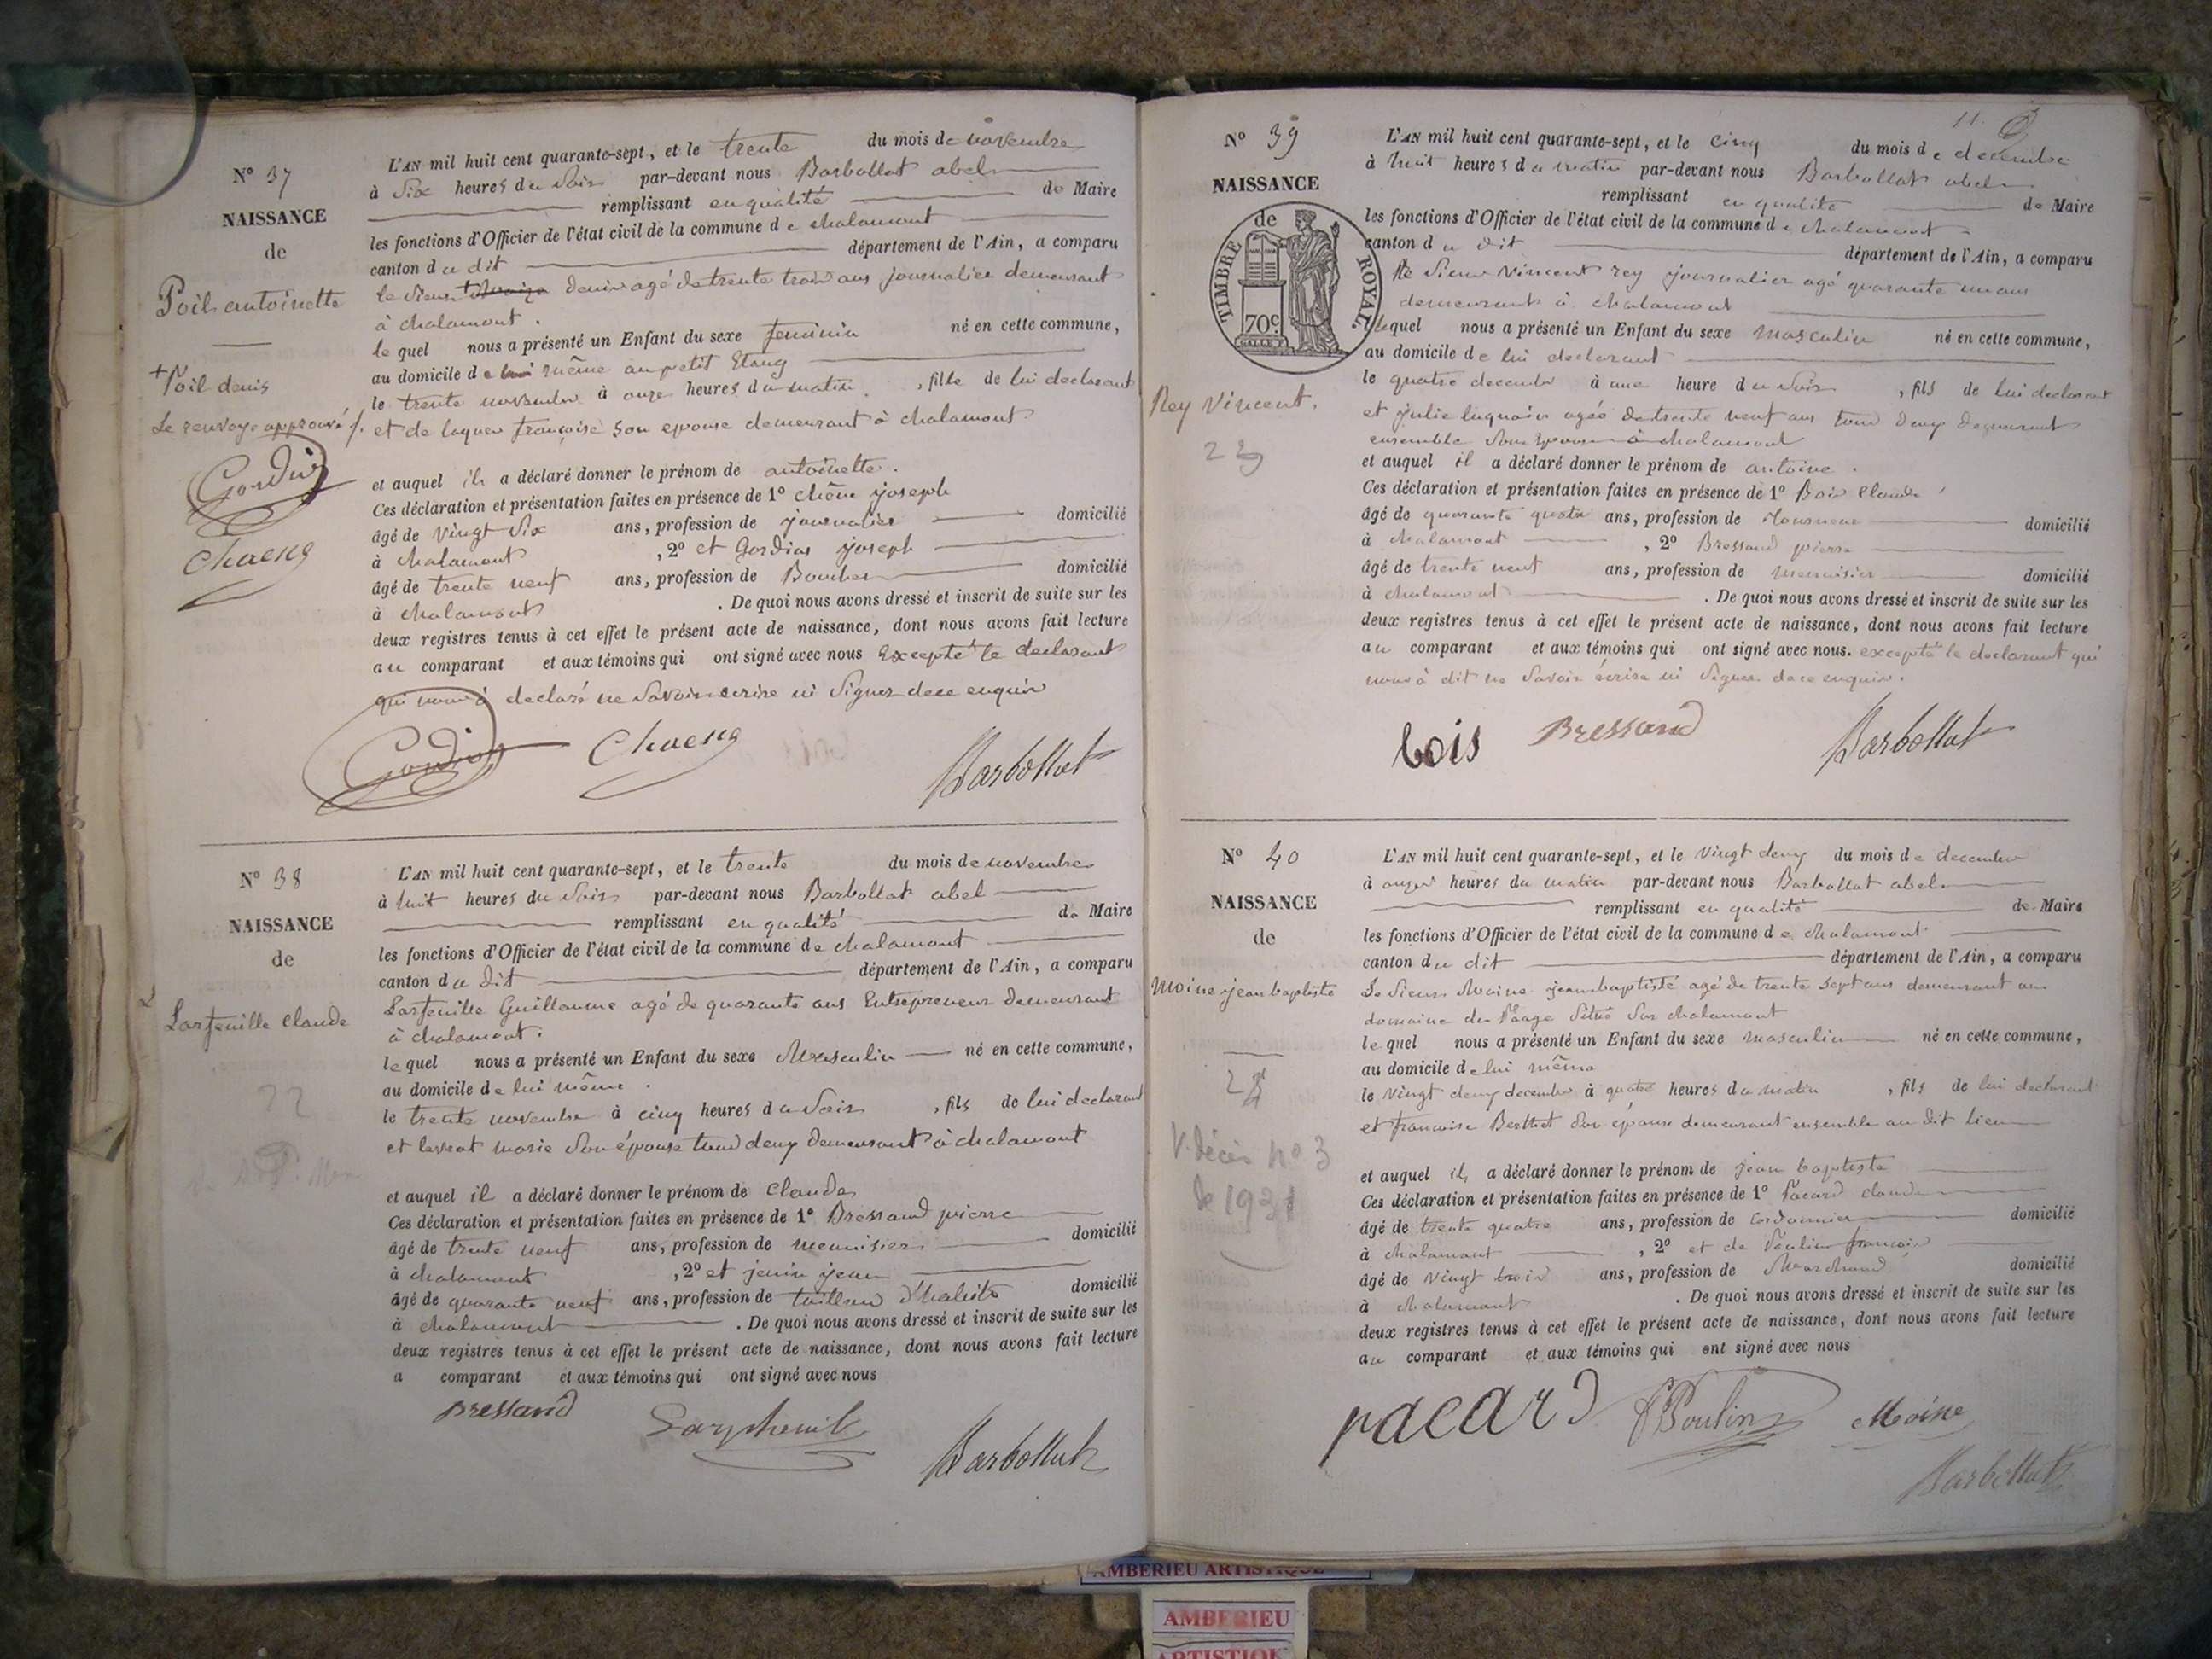 N° 37
NAISSANCE
de
Poil antoinette
+ Poil denis
Le renvoye approuvé
Gordia
Chaeng
L'AN mil huit cent quarante-sept, et le trente du mois de novembre
à Six heures du Soir par-devant nous Barbollat abel
remplissant en qualité de Maire
les fonctions d'Officier de l'état civil de la commune de chalamont
canton du dit département de l'Ain, a comparu
le Sieur + denis agé de trente trois ans journalier demeurant
à chalamont.
le quel nous a présenté un Enfant du sexe feminin né en cette commune,
au domicile de lui même au petit Etang
le trente novembre à onze heures du matin, fille de lui declarant
et de laquer françoise son epouse demeurant à chalamont
et auquel il a déclaré donner le prénom de antoinette.
Ces déclaration et présentation faites en présence de 1° chêne joseph
âgé de vingt Six ans, profession de journalier domicilié
à chalamont, 2° et Gordias joseph
âgé de trente neuf ans, profession de Boucher domicilié
à chalamont. De quoi nous avons dressé et inscrit de suite sur les
deux registres tenus à cet effet le présent acte de naissance, dont nous avons fait lecture
au comparant et aux témoins qui ont signé avec nous Excepté le declarant
qui nous à declaré ne Savoir ecrire ni Signer de ce enquis
Gordia Chaeng Barbollat
N° 38
NAISSANCE
de
Larfeuille claude
22
L'AN mil huit cent quarante-sept, et le trente du mois de novembre
à huit heures du Soir par-devant nous Barbollat abel
remplissant en qualité de Maire
les fonctions d'Officier de l'état civil de la commune de chalamont
canton du dit département de l'Ain, a comparu
Larfeuille Guillaume agé de quarante ans Entrepreneur demeurant
à chalamont.
le quel nous a présenté un Enfant du sexe Masculin né en cette commune,
au domicile de lui même.
le trente novembre à cinq heures du Soir, fils de lui declarant
et levrat marie Son épouse tous deux demeurant à chalamont
et auquel il a déclaré donner le prénom de claude
Ces déclaration et présentation faites en présence de 1° Bressand pierre
âgé de trente neuf ans, profession de menuisier domicilié
à chalamont, 2° et jenin jean
âgé de quarante neuf ans, profession de tailleur d'habits domicilié
à chalamont. De quoi nous avons dressé et inscrit de suite sur les
deux registres tenus à cet effet le présent acte de naissance, dont nous avons fait lecture
a comparant et aux témoins qui ont signé avec nous
Bressand Barbollat
11.
N° 39
NAISSANCE
de
TIMBRE ROYAL.
70c
Rey Vincent.
23
L'AN mil huit cent quarante-sept, et le cinq du mois de decembre
à huit heures du matin par-devant nous Barbollat abel
remplissant en qualité de Maire
les fonctions d'Officier de l'état civil de la commune de chalamont
canton du dit département de l'Ain, a comparu
le Sieur Vincent rey journalier agé quarante un ans
demeurant à chalamont
lequel nous a présenté un Enfant du sexe masculin né en cette commune,
au domicile de lui declarant
le quatre decembre à une heure du Soir, fils de lui declarant
et julie agée de trente neuf ans tous deux demeurant
ensemble à chalamont
et auquel il a déclaré donner le prénom de antoine.
Ces déclaration et présentation faites en présence de 1° Bois Claude
âgé de quarante quatre ans, profession de domicilié
à chalamont, 2° Bressand pierre
âgé de trente neuf ans, profession de menuisier domicilié
à chalamont. De quoi nous avons dressé et inscrit de suite sur les
deux registres tenus à cet effet le présent acte de naissance, dont nous avons fait lecture
au comparant et aux témoins qui ont signé avec nous. excepté le declarant qui
nous à dit ne Savoir écrire ni Signer de ce enquis.
bois Bressand Barbollat
N° 40
NAISSANCE
de
Moine jean baptiste
24
V. décès n° 3
de 1931
L'AN mil huit cent quarante-sept, et le Vingt deux du mois de decembre
à onze heures du matin par-devant nous Barbollat abel
remplissant en qualité de Maire
les fonctions d'Officier de l'état civil de la commune de chalamont
canton du dit département de l'Ain, a comparu
Le Sieur Moine jean baptiste agé de trente Sept ans demeurant au
domaine du Situé Sur chalamont
le quel nous a présenté un Enfant du sexe masculin né en cette commune,
au domicile de lui même
le Vingt deux decembre à quatre heures du matin, fils de lui declarant
et francoise Berthet Son épouse demeurant ensemble au dit lieu
et auquel il a déclaré donner le prénom de jean baptiste
Ces déclaration et présentation faites en présence de 1° Pacard claude
âgé de trente quatre ans, profession de Cordonnier domicilié
à chalamont, 2° et de Poulin francois
âgé de Vingt trois ans, profession de Marchand domicilié
à chalamont. De quoi nous avons dressé et inscrit de suite sur les
deux registres tenus à cet effet le présent acte de naissance, dont nous avons fait lecture
au comparant et aux témoins qui ont signé avec nous
pacard Poulin Moine
Barbollat
AMBERIEU ARTISTIQUE
AMBERIEU
ARTISTIQUE